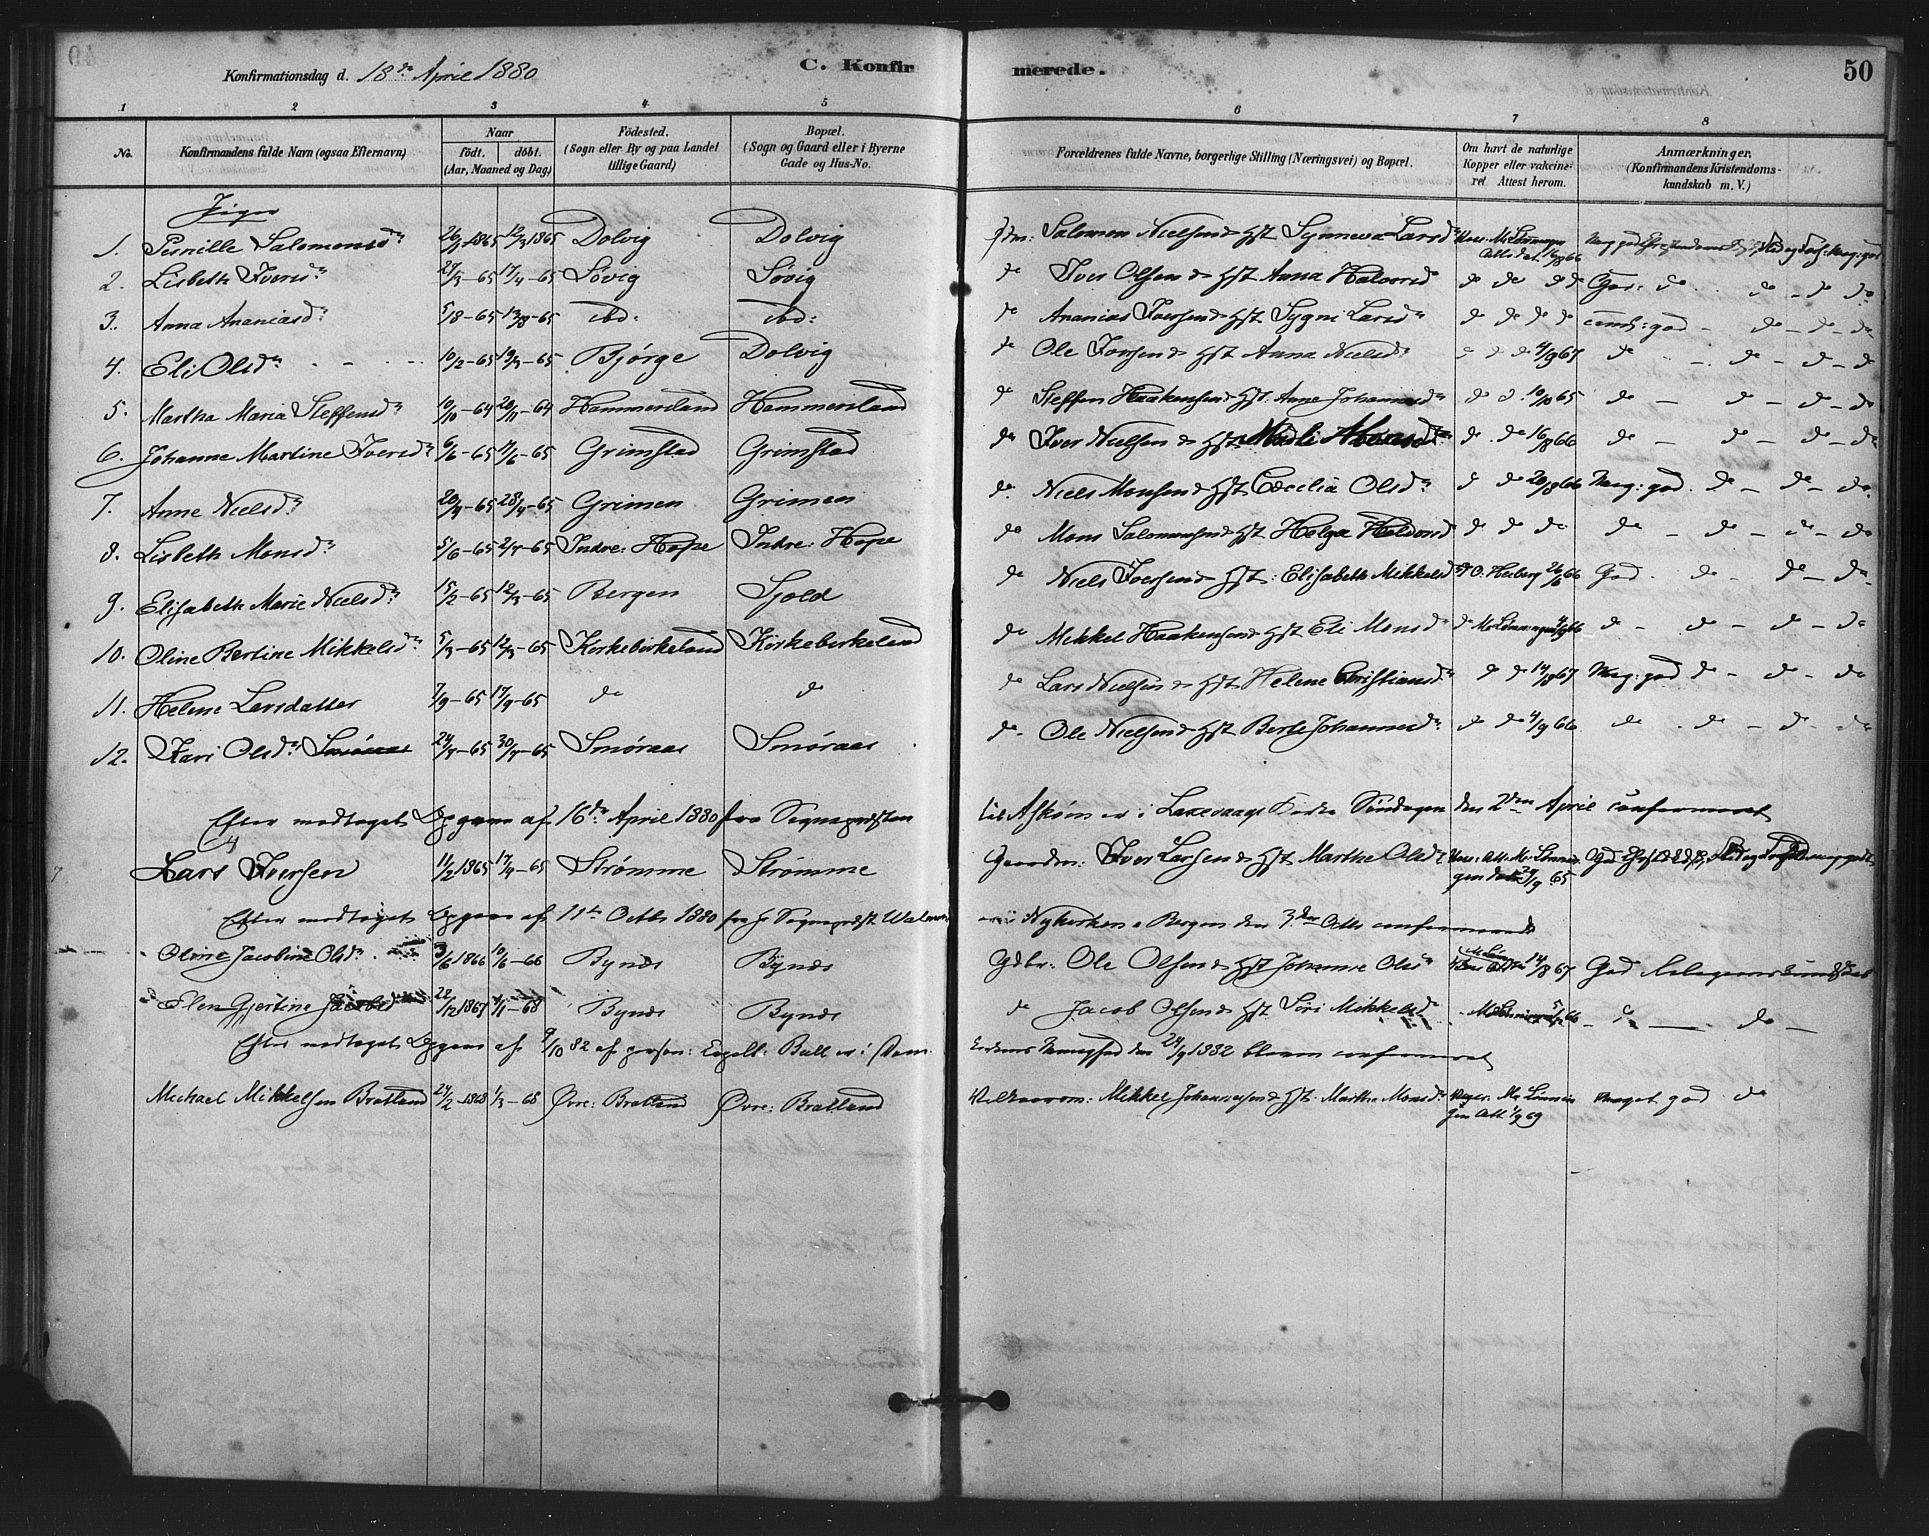 Konfirmationsdag d. 18de April 1880 C. Konfirmerede. 50
1 2 3 4 5 6 7 8
No. Konfirmandens fulde Navn (ogsaa Efternavn) Naar födt. döbt. (Aar, Maaned og Dag) Födested. (Sogn eller By og paa Landet tillige Gaard) Bopæl. (Sogn og Gaard eller i Byerne Gade og Hus-No. Forældrenes fulde Navne, borgerlige Stilling (Næringsvei) og Bopæl. Om havt de naturlige Kopper eller vakcineret Attest herom. Anmærkninger. (Konfirmandens Kristendomskundskab m. V.)
Piger
1. Pernille Salomonsdr 1865 12/3 1865 Dolvig Dolvig Salomon Nielsen & Hst Synneva Larsdr
2. Lisbeth Iversdr 27/3-65 17/4-65 Søvig Søvig do Iver Olsen & Hst Anna Halvorsd do do do do do do do
3. Anna Ananiasdr 5/8-65 13/8-65 ibd: ibd: do Ananias Iversen & Hst Sygni Larsdr do do do do god - do - do - do
4. Eli Olsdr 10/2-65 19/3-65 Bjørge Dolvig do Ole Iversen & Hst Anna Nielsdr do do do 4/9 67 do - do - do - do
5. Martha Maria Steffensdr 10/10-64 20/11-64 Hammersland Hammersland do Steffen Haakensen & Hst: Anne Johannesdr do do 10/10 65 do - do - do - do
6. Johanne Martine Iversdr 6/6-65 11/6-65 Grimstad Grimstad do Iver Nielsen & Hst do do 16/8 66 do - do - do - do
7. Anne Nielsdr 20/4-65 28/4-65 Grimen Grimen do Niels Monsen & Hst Cecilia Olsdr do do 20/8 66 Meg: god do - do - do
8. Lisbeth Monsdr 5/6-65 2/7-65 Indre: Hope Indre: Hope do Mons Salomonsen & Hst Helga Haldorsd do do do do - do - do - do
9. Elisabeth Marie Nielsdr 15/2-65 12/3-65 Bergen Sjold do Niels Iversen & Hst: Elisabeth Mikkelsd O. Heiberg 26/6 66 God do - do - do
10. Oline Bertine Mikkelsdr 5/3-65 12/3-65 Kirkebirkeland Kirkebirkeland do Mikkel Haakensen & Hst Eli Monsdr do do - do - do - do
11. Helene Larsdatter 7/9-65 17/9-65 do do do Lars Nielsen & Hst Helene Christiansdr do do 14/8 67 Meg: god do - do - do
12. Kari Olsdr Smøraas 24/4-65 30/4-65 Smøraas Smøraas do Ole Nielsen & Hst Berte Johannesdr do do 4/9 66 do do - do - do
Efter modtaget Opgave af 16de April 1880 fra Sognepræsten til Askøen er i Laxevaags Kirke Søndagen den 2den April confirmeret
Lars Iversen 11/2 1865 17/4-65 Strømme Strømme Gaardm: Iver Larsen & Hst Marthe Olsdr
Efter modtaget Opgave af 11te Octbr 1880 fra Sognepræst i Nykirken i Bergen den 3die Octbr confirmeret
Oline Jacobine Olsdr 3/6 1866 10/6-66 Bynes Bynes Gdbr: Ole Olsen & Hst Johanne Olsdr 14/8 67 God Religionskundskab
Elen Gjertine Jacobsd 22/12 1867 1/1-68 Bynes Bynes do Jacob Olsen & Hst Siri Mikkelsdr do do
Efter modtaget Opgave af 9/10 82 af person: Capell: Bull er i Dom kirkens Menighed den 24/9 1882 bleven confirmeret
Michael Mikkelsen Bratland 24/2-1868 1/3-68 Øvre: Bratland Øvre: Bratland Mikkel Johannessen & Hst Marthe Monsdr 1/9 69 Meget god do